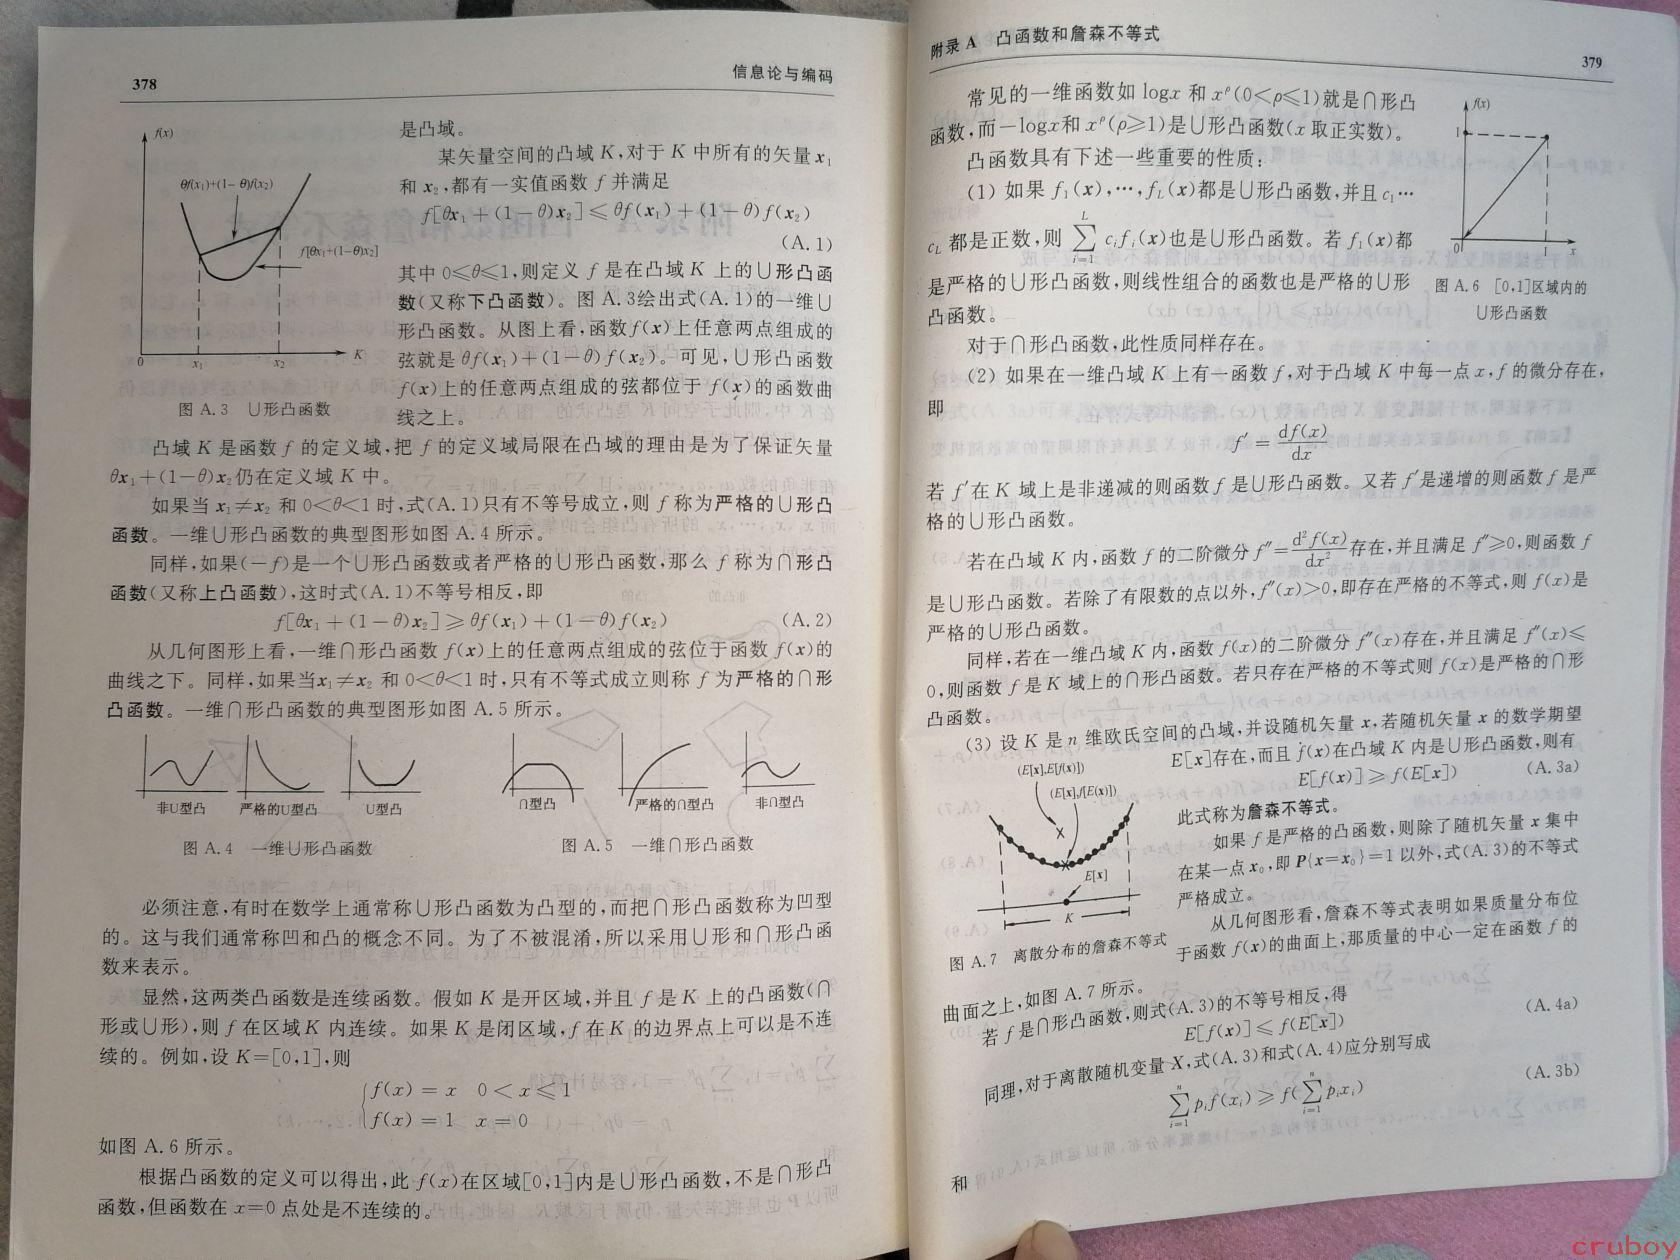 378
信息论与编码
f(x)
θf(x₁)+(1-θ)f(x₂)
f[θx₁+(1-θ)x₂]
0
x₁
x₂
K
图 A.3 ∪形凸函数
是凸域。
某矢量空间的凸域 K,对于 K 中所有的矢量 x₁
和 x₂,都有一实值函数 f 并满足
f[θx₁+(1-θ)x₂]≤θf(x₁)+(1-θ)f(x₂)
(A.1)
其中 0≤θ≤1,则定义 f 是在凸域 K 上的∪形凸函
数(又称下凸函数)。图 A.3绘出式(A.1)的一维∪
形凸函数。从图上看,函数f(x)上任意两点组成的
弦就是 θf(x₁)+(1-θ)f(x₂)。可见,∪形凸函数
f(x)上的任意两点组成的弦都位于 f(x)的函数曲
线之上。
凸域 K 是函数 f 的定义域,把 f 的定义域局限在凸域的理由是为了保证矢量
θx₁+(1-θ)x₂仍在定义域 K 中。
如果当 x₁≠x₂ 和 0<θ<1 时,式(A.1)只有不等号成立,则 f 称为严格的∪形凸
函数。一维∪形凸函数的典型图形如图 A.4 所示。
同样,如果(-f)是一个∪形凸函数或者严格的∪形凸函数,那么 f 称为∩形凸
函数(又称上凸函数),这时式(A.1)不等号相反,即
f[θx₁+(1-θ)x₂]≥θf(x₁)+(1-θ)f(x₂) (A.2)
从几何图形上看,一维∩形凸函数 f(x)上的任意两点组成的弦位于函数 f(x)的
曲线之下。同样,如果当x₁≠x₂ 和 0<θ<1 时,只有不等式成立则称 f 为严格的∩形
凸函数。一维∩形凸函数的典型图形如图 A.5 所示。
非∪型凸 严格的∪型凸 ∪型凸
∩型凸 严格的∩型凸 非∩型凸
图 A.4 一维∪形凸函数
图 A.5 一维∩形凸函数
必须注意,有时在数学上通常称∪形凸函数为凸型的,而把∩形凸函数称为凹型
的。这与我们通常称凹和凸的概念不同。为了不被混淆,所以采用∪形和∩形凸函
数来表示。
显然,这两类凸函数是连续函数。假如 K 是开区域,并且 f 是 K 上的凸函数(∩
形或∪形),则 f 在区域 K 内连续。如果 K 是闭区域,f 在 K 的边界点上可以是不连
续的。例如,设 K=[0,1],则
{f(x)=x 0<x≤1
f(x)=1 x=0
如图 A.6 所示。
根据凸函数的定义可以得出,此 f(x)在区域[0,1]内是∪形凸函数,不是∩形凸
函数,但函数在 x=0 点处是不连续的。
附录 A 凸函数和詹森不等式
379
常见的一维函数如 logx 和 xᵖ(0<ρ≤1)就是∩形凸
函数,而-logx和 xᵖ(ρ≥1)是∪形凸函数(x 取正实数)。
凸函数具有下述一些重要的性质:
(1) 如果 f₁(x),…,f_L(x)都是∪形凸函数,并且 c₁…
c_L 都是正数,则 ∑_{i=1}^{L} cᵢfᵢ(x)也是∪形凸函数。若 f₁(x)都
是严格的∪形凸函数,则线性组合的函数也是严格的∪形
凸函数。
f(x)
1
0
1
x
图 A.6 [0,1]区域内的
∪形凸函数
对于∩形凸函数,此性质同样存在。
(2) 如果在一维凸域 K 上有一函数 f,对于凸域 K 中每一点 x,f 的微分存在,
即
f′=df(x)/dx
若 f′在 K 域上是非递减的则函数 f 是∪形凸函数。又若 f′是递增的则函数 f 是严
格的∪形凸函数。
若在凸域 K 内,函数 f 的二阶微分 f″=d²f(x)/dx²存在,并且满足 f″≥0,则函数 f
是∪形凸函数。若除了有限数的点以外,f″(x)>0,即存在严格的不等式,则 f(x)是
严格的∪形凸函数。
同样,若在一维凸域 K 内,函数 f(x)的二阶微分 f″(x)存在,并且满足 f″(x)≤
0,则函数 f 是 K 域上的∩形凸函数。若只存在严格的不等式则 f(x)是严格的∩形
凸函数。
(3) 设 K 是 n 维欧氏空间的凸域,并设随机矢量 x,若随机矢量 x 的数学期望
E[x]存在,而且 f(x)在凸域 K 内是∪形凸函数,则有
E[f(x)]≥f(E[x]) (A.3a)
此式称为詹森不等式。
如果 f 是严格的凸函数,则除了随机矢量 x 集中
在某一点 x₀,即 P{x=x₀}=1 以外,式(A.3)的不等式
严格成立。
从几何图形看,詹森不等式表明如果质量分布位
于函数 f(x)的曲面上,那质量的中心一定在函数 f 的
(E[x],E[f(x)])
(E[x],f[E(x)])
E[x]
K
图 A.7 离散分布的詹森不等式
曲面之上,如图 A.7 所示。
若 f 是∩形凸函数,则式(A.3)的不等号相反,得
E[f(x)]≤f(E[x]) (A.4a)
同理,对于离散随机变量 X,式(A.3)和式(A.4)应分别写成
∑_{i=1}^{n} pᵢf(xᵢ)≥f(∑_{i=1}^{n} pᵢxᵢ) (A.3b)
和
cruboy